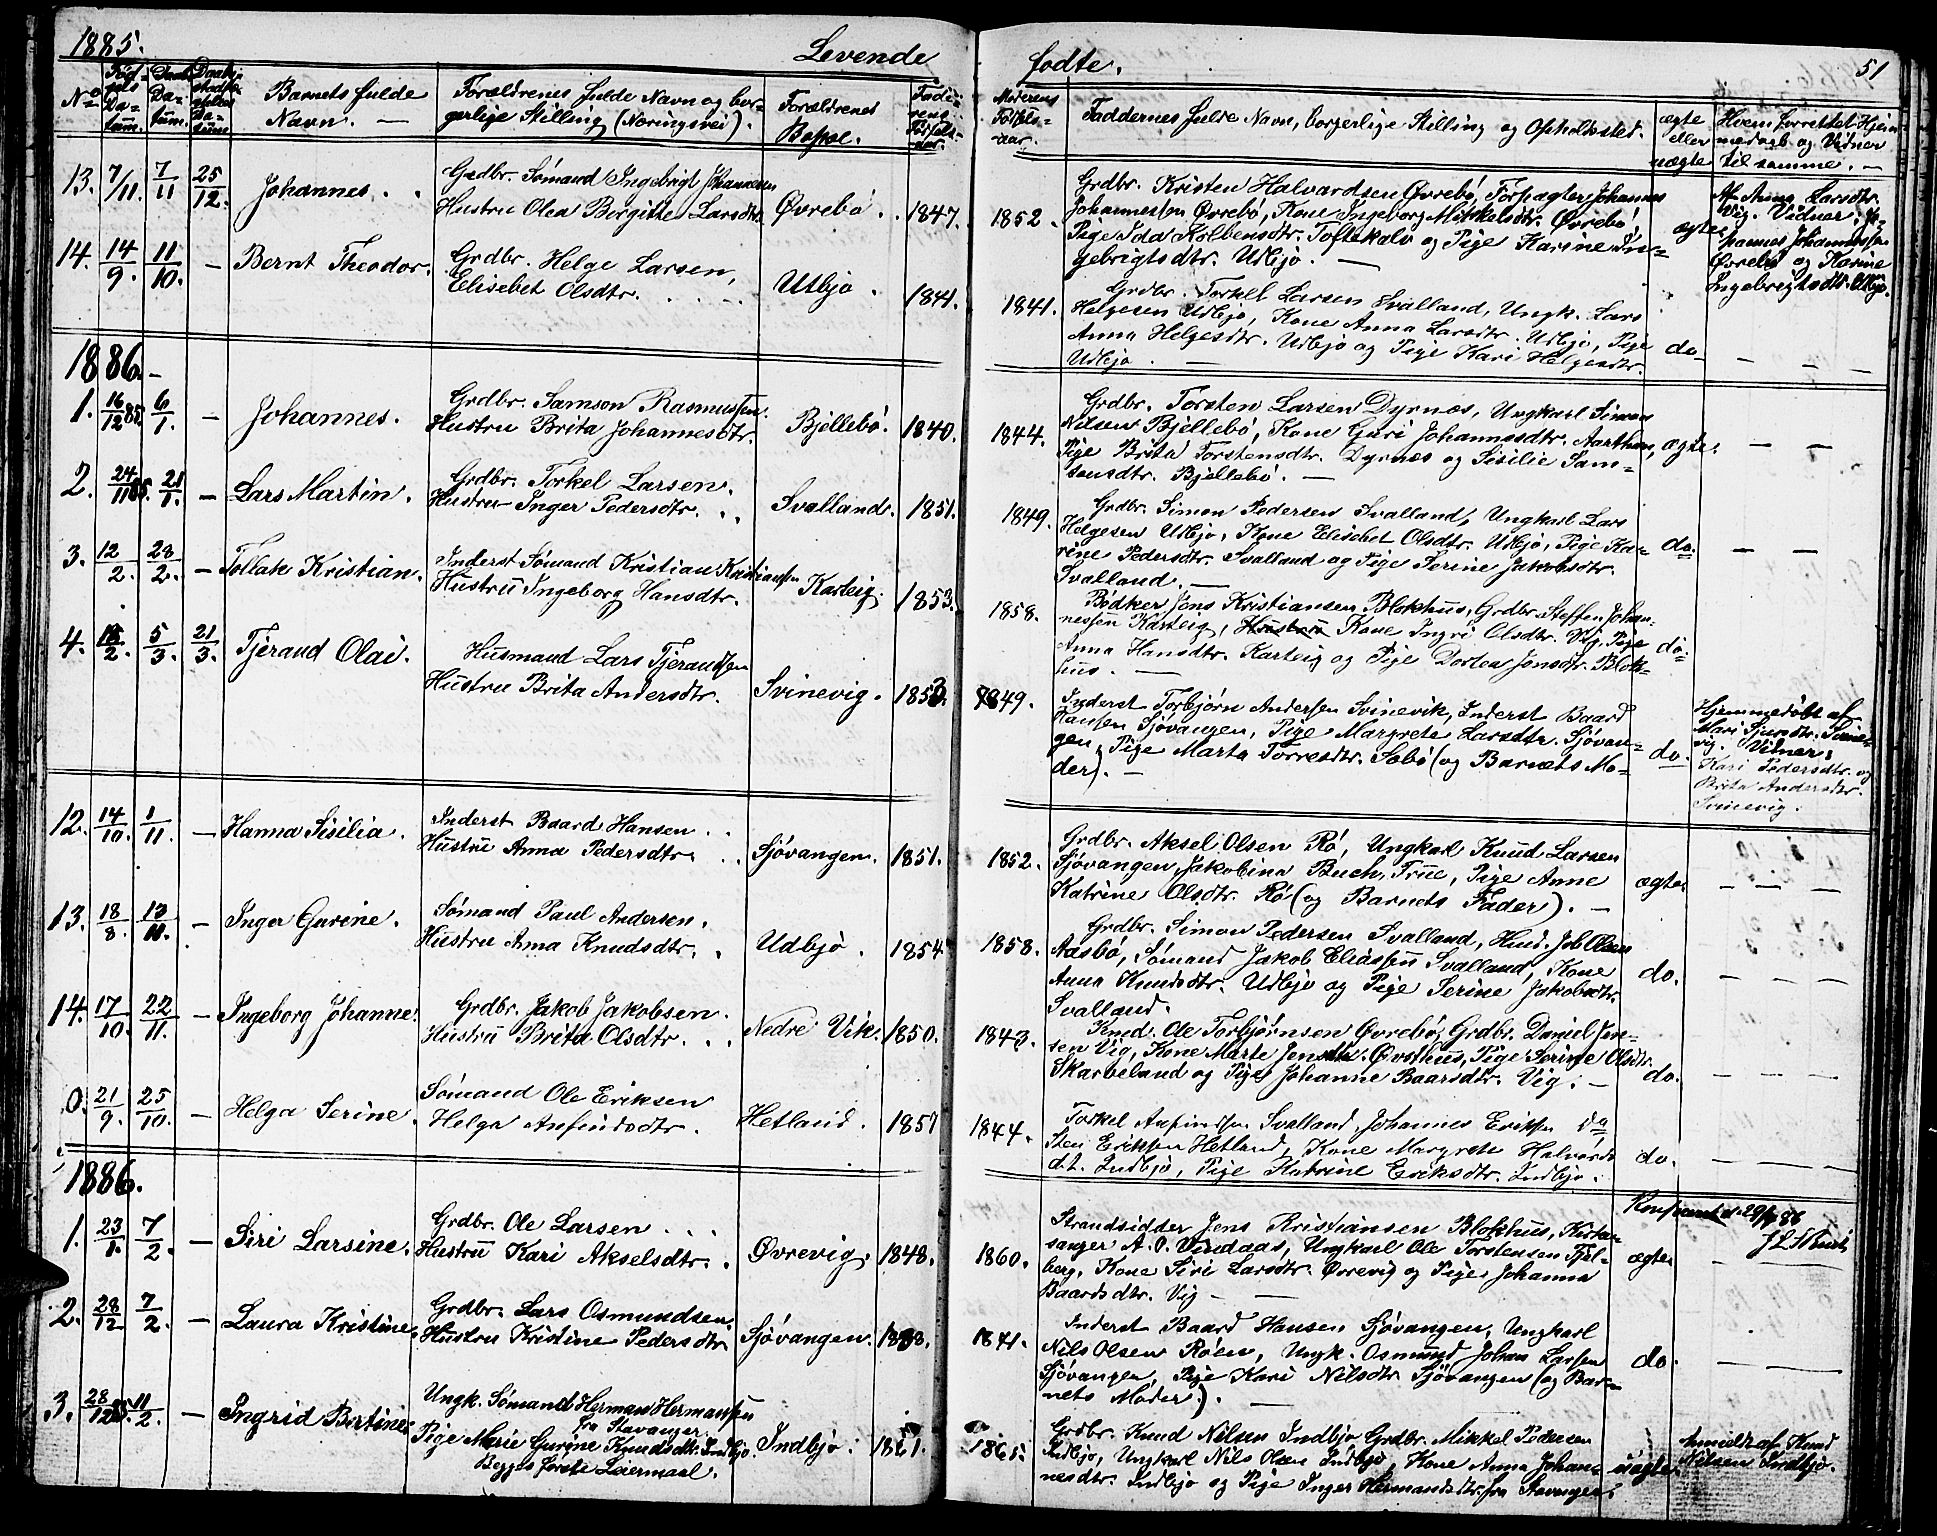 1885.
Levende
No
Fød-
sels
Da-
tum.
Daabs
Da-
tum.
Barnets fulde
Navn. —
Forældrenes fulde Navn og bor-
gerlige Stilling (Næringsvei).
Forældrenes
Bopæl.
Fade-
rens
Fødsels-
aar.
13. 7/11. 7/11 25/12. Johannes. Grdbr. Sømand Ingebrigt Johannesen
Hustru Olea Bergitte Larsdtr. Øvrebø. 1847.
14. 14/9. 11/10. — Bernt Theodor. Grdbr. Helge Larsen,
Elisebet Olsdtr. Utbjo. 1841.
1886.—
1. 16/12 85. 6/1. — Johannes. Grdbr. Samson Rasmussen.
Hustru Brita Johannesdtr. Bjellebø. 1840.
2. 24/11 85. 21/1. — Lars Martin. Grdbr. Torkel Larsen.
Hustru Inger Pedersdtr. Svalland. 1851.
3. 12/2. 28/2. — Tollak Kristian. Inderst Sømand Kristian Kristiansen
Hustru Ingeborg Hansdtr. Karteig. 1853.
4. /2. 5/3. 21/3. Tjerand Olai. Husmand Lars Tjerandsen
Hustru Brita Andersdtr. Svinevig. 1853.
12. 14/10. 1/11. — Hanna Sisilia. Inderst Baard Hansen
Hustru Anna Pedersdtr. Sjøvangen. 1851.
13. 18/8. 13/ — Inger Gurine. Sømand Paul Andersen.
Hustru Anna Knudsdtr. Udbjo. 1854
14. 17/10. 22/11. — Ingeborg Johanne. Grdbr. Jakob Jakobsen.
Hustru Brita Olsdtr. Nedre Vik. 1850.
0. 21/9. 25/10. — Helga Serine. Sømand Ole Eriksen
Helga Anfindsdtr. Hetland. 1857
1886.
1. 23/1. 7/2. — Siri Larsine. Grdbr. Ole Larsen
Hustru Kari Akselsdtr. Øvrevig. 1848.
2. 28/12 7/2. — Laura Kristine. Grdbr. Lars Osmundsen.
Hustru Kristine Pedersdtr. Sjøvangen.
3. 28/12 85. 11/2. — Ingrid Bertine Ungk. Sømand Herman Hermansen
fra Stavanger.
Pige Marie Gurine Knudsdtr. Indbjo. Indbjo. 1861.
Begges første Leiermaal.
fødte.
51
Moderens
Fødsels-
aar.
Faddernes fulde Navn, borgerlige Stilling og Opholdssted.
ægte
eller
uægte
Hvem forrettet Hjem-
medaab og Vidner
til samme. —
1852. Grdbr. Kristen Halvardsen Øvrebø, Forpagter Johannes
Johannessen Øvrebø, Kone Ingeborg Mikkelsdtr. Øvrebø,
Pige Ida Kolbensdtr. Toftekalv og Pige Karine In-
gebrigtsdtr. Udbjo. — ægte
Af Anna Larsdtr.
Vig. Vidner: Jo-
hannes Johannessen
Øvrebø og Karine
Ingebrigtsdtr. Utbjo.
1841. Grdbr. Torkel Larsen Svalland, Ungk. Lars
Helgesen Udbjo, Kone Anna Larsdtr. Udbjo, Pige
Anna Helgesdtr. Udbjo og Pige Kari Helgesdtr.
Udbjo. — do — — —
1844. Grdbr. Torsten Larsen Dyrnæs, Ungkarl Simon
Nilsen Bjellebø, Kone Guri Johannsdtr. Aarthun,
Pige Brita Torstensdtr. Dyrnæs og Sisilie Sam-
sonsdtr. Bjellebø. — ægte. — —
1849. Grdbr. Simon Pedersen Svalland, Ungkarl Lars
Helgesen Udbjo, Kone Elisebet Olsdtr. Udbjo, Pige Ka-
rine Pedersdtr. Svalland og Pige Serine Jakobsdtr.
Svalland. — do. — —
1858. Bødker Jens Kristiansen Blokhus, Grdbr. Steffen Johan-
nessen Karteig, Hustru Kone Ingri Olsdtr. Vig, Pige
Anna Hansdtr. Karteig og Pige Dortea Jensdtr. Blok-
hus. — do.
1849. Inderst Torbjørn Andersen Svinevik, Inderst Baard
Hansen Sjøvangen, Pige Margrete Larsdtr. Sjøvan-
gen, Pige Marta Torresdtr. Sæbø (og Barnets Mo-
der). — do.
Hjemmedøbt af
Mari Sjursdtr. Svine-
vig. Vitner:
Kari Pedersdtr. og
Brita Andersdtr.
Svinevig.
1852. Grdbr. Aksel Olsen Rø, Ungkarl Knud Larsen
Sjøvangen, Jakobina Buch, Frue, Pige Anne
Katrine Olsdtr. Rø (og Barnets Fader). — ægte — — —
1858. Grdbr. Simon Pedersen Svalland, Husd. Job Olsen
Aasbø, Sømand Jakob Eliassen Svalland, Kone
Anna Knudsdtr. Udbjo og Pige Serine Jakobsdtr.
Svalland. do. — — —
1843. Husd. Ole Torbjørnsen Øvrebø, Grdbr. Daniel Jen-
sen Vig, Kone Marte Jensdtr. Øvsthus, Pige Serine Olsdtr.
Skarveland og Pige Johanne Baarsdtr. Vig. — do. — — —
1844. Torkel Anfindsen Svalland, Johannes Eriksen do
Sten Eriksen Hetland, Kone Margrete Halvards
dt. Indbjo, Pige Katrine Eriksdtr. Indbjo. do. — — —
1860. Strandsidder Jens Kristiansen Blokhus, Kirke-
sanger A. O. Vindaas, Ungkarl Ole Torstensen Fjel-
berg, Kone Siri Larsdtr. Øvrevig og Pige Johanna
Baardsdtr. Vig — — ægte
1841. Inderst Baard Hansen Sjøvangen, Ungkarl
Nils Olsen Røen, Ungk. Osmund Johan Larsen
Sjøvangen, Pige Kari Nilsdtr. Sjøvangen (og Bar-
nets Moder). — do. — —
1865. Grdbr. Knud Nilsen Indbjo Grdbr. Mikkel Pedersen
Indbjo, Ungkarl Nils Olsen Indbjo, Kone Anna Johan-
nesdtr. Indbjo og Pige Inger Hermansdtr. fra Stavanger. uægte
Anmeldt af Knud
Nilsen Indbjo.